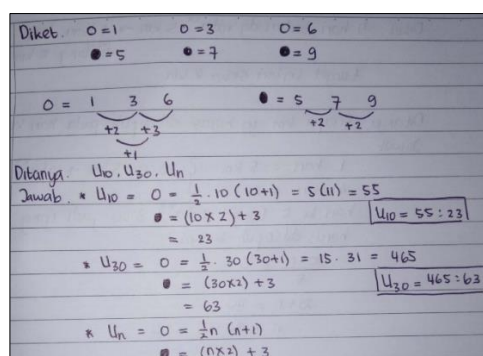 Diket. O = 1 O = 3 O = 6
● = 5 ● = 7 ● = 9
O = 1 3 6 ● = 5 7 9
+2 +3 +2 +2
+1
Ditanya. U10, U30, Un
Jawab. * U10 = O = 1/2 . 10 (10+1) = 5(11) = 55
● = (10 x 2) + 3 U10 = 55 : 23
= 23
* U30 = O = 1/2 . 30 (30+1) = 15 . 31 = 465
● = (30x2) + 3 U30 = 465 : 63
= 63
* Un = O = 1/2 n (n+1)
● = (n x 2) + 3